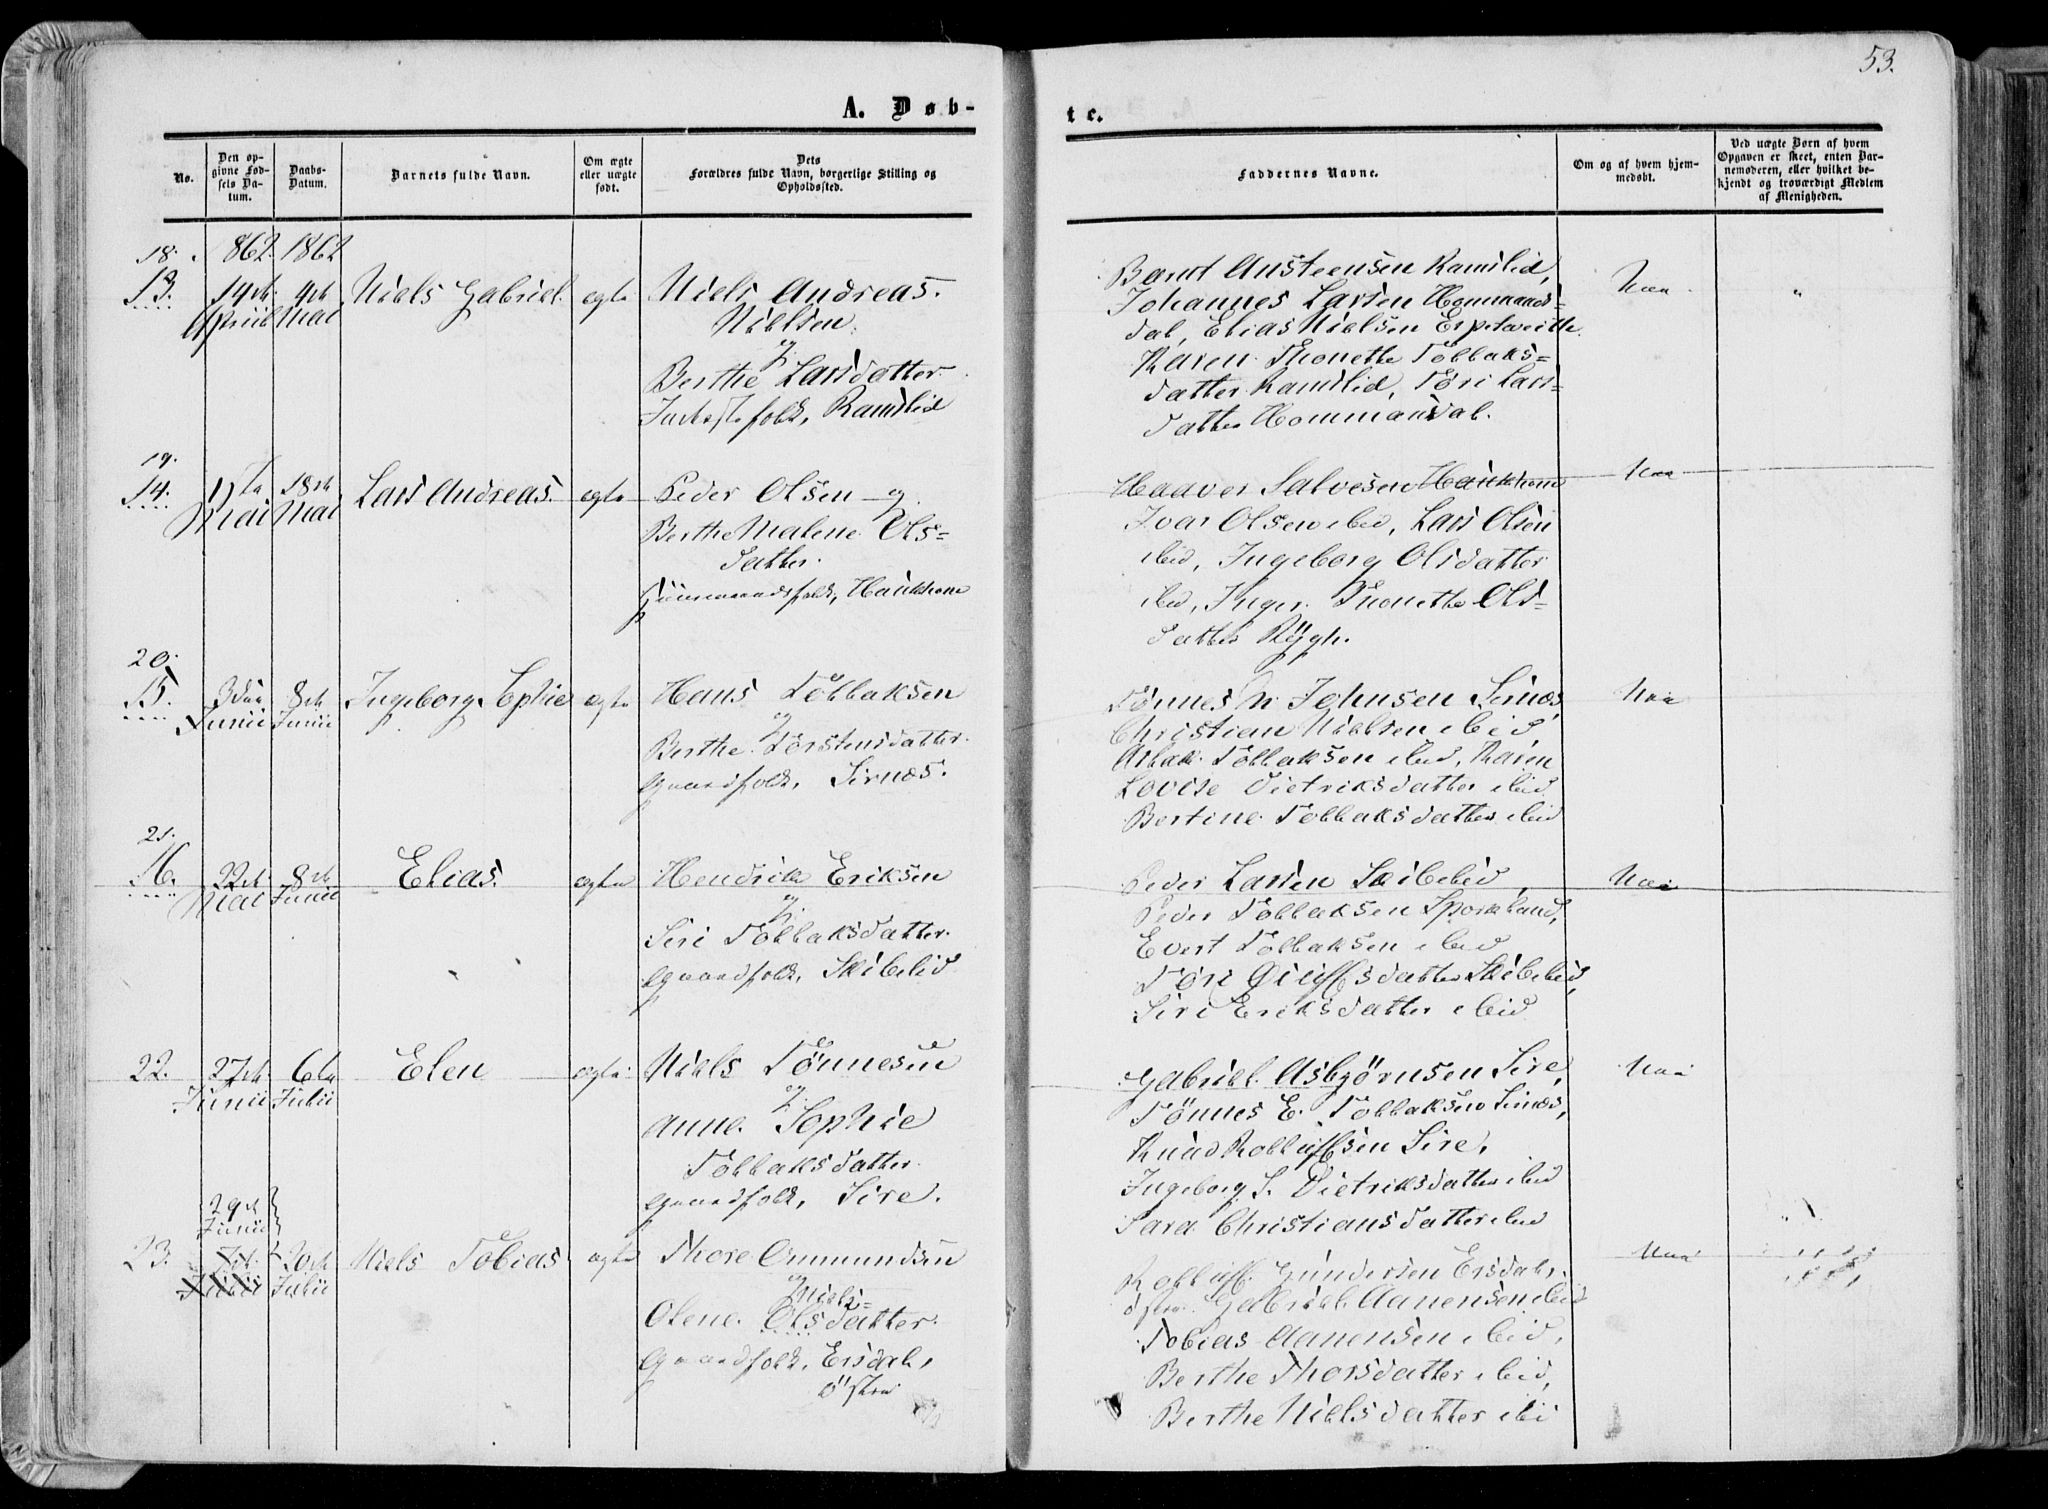 53.
A. Døb-
te.
No.
Den op-
givne Fød-
sels Da-
tum.
Daabs-
Datum.
Barnets fulde Navn.
Om ægte
eller uægte
født.
Dets
Forældres fulde Navn, borgerlige Stilling og
Opholdssted.
Faddernes Navne.
Om og af hvem hjem-
medøbt.
Ved uægte Børn af hvem
Opgaven er skeet, enten Bar-
nemoderen, eller hvilket be-
kjendt og troværdigt Medlem
af Menigheden.
18. 1862 1862
13. 14de 4de Niels Gabriel ægte Niels Andreas
April Mai Nielsen
og
Berthe Larsdatter
folk, Ramslid
Bernt Austeensen Ramslid,
Johannes Larsen Hommans-
dal, Elias Nielsen Erpetveith
Karen Thonette Tollaks-
datter Ramslid, Tøri Lars-
datter Hommansdal.
Nei
"
19.
14. 18de Lars Andreas ægte Peder Olsen og
Mai Mai Berthe Malene Ols-
datter
Huusmandsfolk, Haukhom
Haaver Salvesen Haukhom
Ivar Olsen ibid, Lars Olsen
ibid, Ingeborg Olsdatter
ibid, Inger Thonette Ols-
datter Rygh.
Nei
20.
15. 3die 8de Ingeborg Sophie ægte Hans Tollaksen
Junii Junii og
Berthe Torstensdatter
Gaardfolk, Sirnæs.
Tønnes N. Johnsen Sirnæs,
Christian Nielsen ibid
Aslak Tollaksen ibid, Karen
Lovise Dietriksdatter ibid
Bertine Tollaksdatter ibid
Nei
21.
16. 22de 8de Elias. ægte Hendrik Eriksen
Mai Junii og
Siri Tollaksdatter
Gaardfolk, Skibelid
Peder Larsen Skibelid,
Peder Tollaksen Sporkland,
Evert Tollaksen ibid
Tøri datter Skibelid,
Siri Eriksdatter ibid
Nei
22. 27de 6te Elen ægte Niels Tønnesen
Junii Julii og
Anne Sophie
Tollaksdatter
Gaardfolk, Sire.
Gabriel Asbjørnsen Sire,
Tønnes E. Tollaksen Sirnæs,
Knud Rolluffsen Sire,
Ingeborg S. Dietriksdatter ibid
Sara Christiansdatter ibid
Nei
29de
Junii
23. 7de 20de Niels Tobias ægte Thore Ommundsen
Julii Julii og
Niels=
Olene Olsdatter
Gaardfolk, Ersdal,
østre
Rolluff Gundersen Ersdal,
østre Gabriel Aanensen ibid
Tobias Aanensen ibid,
Berthe Thorsdatter ibid,
Berthe Nielsdatter ibi
Nei